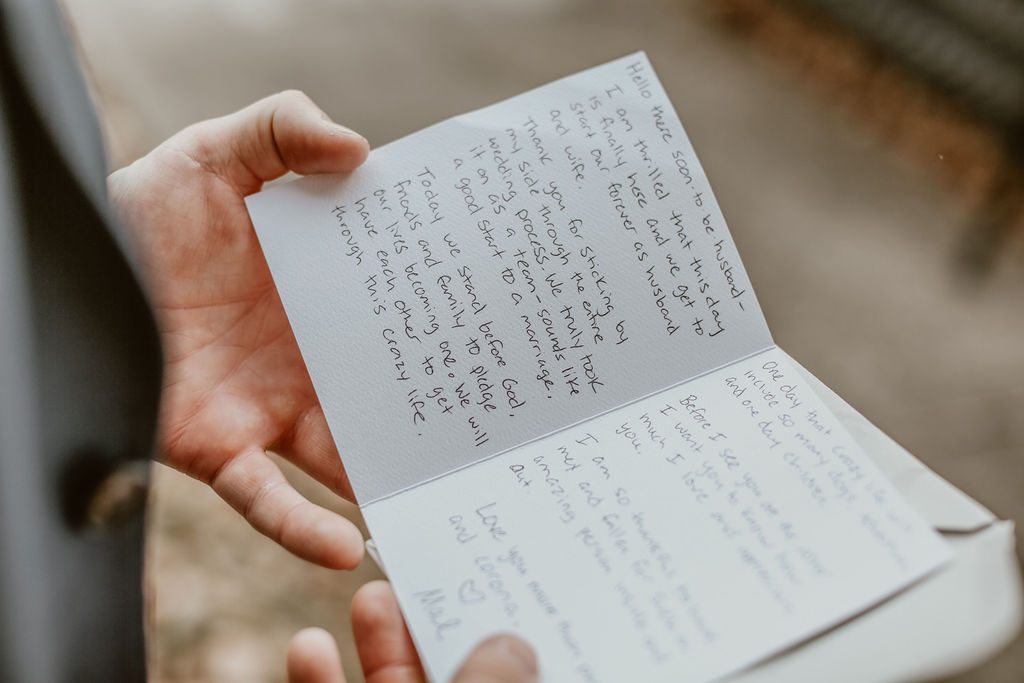 Hello there soon-to be husband-
I am thrilled that this day
is finally here and we get to
start our forever as husband
and wife.
Thank you for sticking by
my side through the entire
wedding process. We truly took
it on as a team - sounds like
a good start to a marriage.
Today we stand before God,
friends and family to pledge
our lives becoming one. We will
have each other to get
through this crazy life.
One day that crazy life will
include so many dogs
and one day children.
Before I see you at the altar
I want you to know how
much I love and appreciate
you.
I am so thankful
met and fallen for such an
amazing person inside and
out
Love you more than
and corona.
Mal